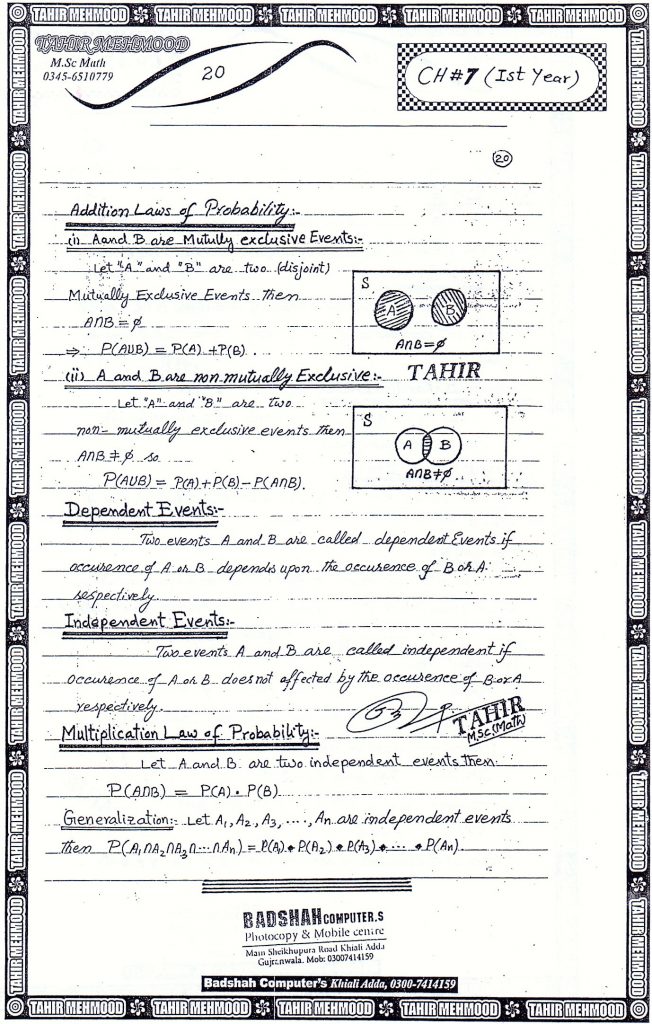 TAHIR MEHMOOD TAHIR MEHMOOD TAHIR MEHMOOD TAHIR MEHMOOD TAHIR MEHMOOD
TAHIR MEHMOOD
M.Sc Math
0345-6510779
20
CH#7 (Ist Year)
20
Addition Laws of Probability:-
(i) A and B are Mutully exclusive Events:-
Let "A" and "B" are two (disjoint)
Mutually Exclusive Events then
A∩B=ϕ
⇒ P(A∪B) = P(A) + P(B).
S
A
B
A∩B=ϕ
TAHIR
(ii) A and B are non mutually Exclusive:-
Let "A" and "B" are two
non-mutually exclusive events then
A∩B≠ϕ so
P(A∪B) = P(A)+P(B)-P(A∩B).
S
A
B
A∩B≠ϕ
Dependent Events:-
Two events A and B are called dependent Events if
occurence of A or B depends upon the occurence of B or A
respectively.
Independent Events:-
Two events A and B are called independent if
occurence of A or B does not affected by the occurence of B or A
respectively.
TAHIR
M.Sc.(Math)
Multiplication Law of Probability:-
Let A and B are two independent events then
P(A∩B) = P(A) . P(B)
Generalization:- Let A₁, A₂, A₃, ...., An are independent events
then P(A₁∩A₂∩A₃∩...∩An) = P(A₁) • P(A₂) • P(A₃) • ... • P(An).
BADSHAH COMPUTER,S
Photocopy & Mobile centre
Main Sheikhupura Road Khiali Adda
Gujranwala. Mob: 03007414159
Badshah Computer's Khiali Adda, 0300-7414159
TAHIR MEHMOOD TAHIR MEHMOOD TAHIR MEHMOOD TAHIR MEHMOOD TAHIR MEHMOOD